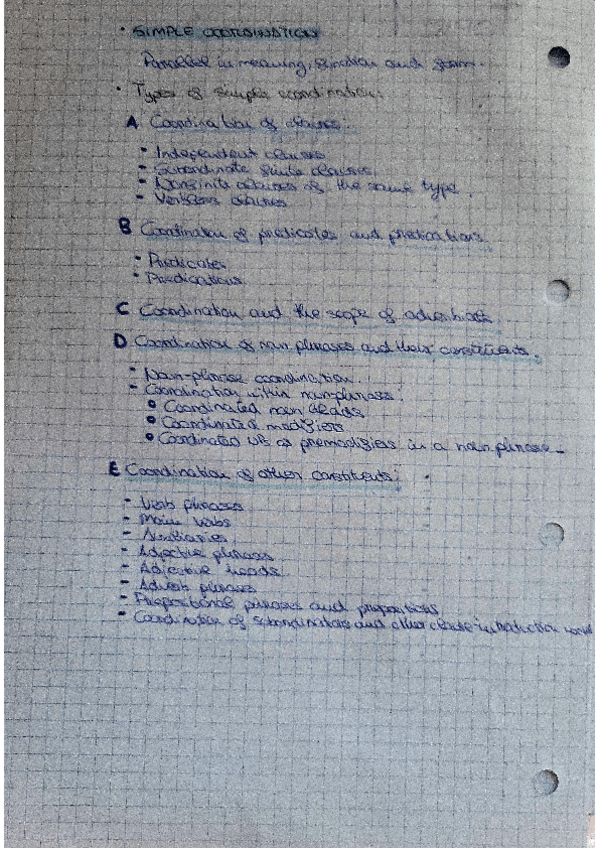 • SIMPLE COORDINATION
Parallel in meaning, function and form.
• Types of simple coordination:
A Coordination of clauses:
- Independent clauses
- Subordinate finite clauses
- Nonfinite clauses of the same type.
- Verbless clauses
B Coordination of predicates and predications.
- Predicates
- Predications
C Coordination and the scope of adverbials.
D Coordination of noun phrases and their constituents.
- Noun-phrase coordination.
- Coordination within noun phrases:
• Coordinated noun heads
• Coordinated modifiers
• Coordinated as premodifiers in a noun phrase.
E Coordination of other constituents:
- Verb phrases
- Main verbs
- Auxiliaries
- Adjective phrases
- Adjective heads
- Adverb phrases
- Prepositional phrases and prepositions
- Coordination of subordinators and other clause-introduction